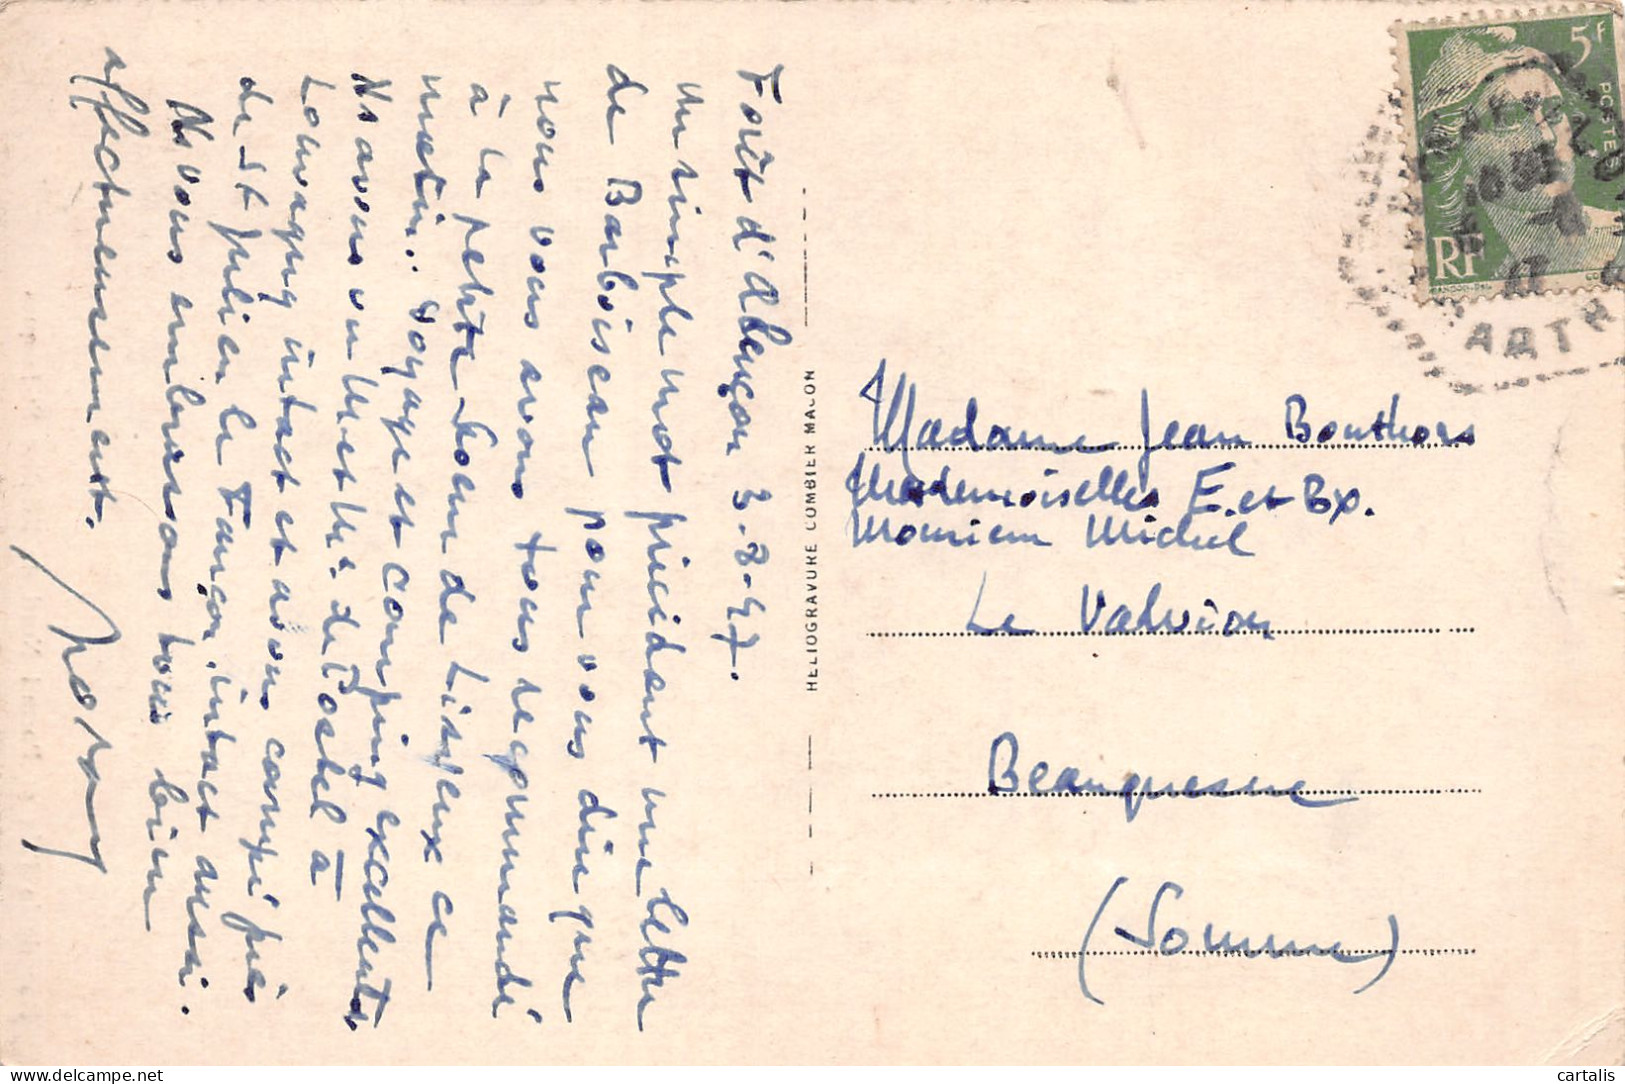 Forêt d'Alençon 3-8-47.
Un simple mot précédant une lettre
de Barboiseau pour vous dire que
nous vous avons tous recommandé
à la petite Soeur de Lisieux ce
matin. Voyage et camping excellents.
Ns avons vu Mr et Me de l'ostel à
Louvagny intact et avons campé près
de St Julien le Faucon, intact aussi.
Ns vous embrassons tous bien
affectueusement.
HELIOGRAVURE COMBIER MACON
5F
POSTES
RF
Madame Jean Bouthors
Mesdemoiselles E. et Bx.
Monsieur Michel
Le Valvion
Beauquesne
(Somme)
cartalis